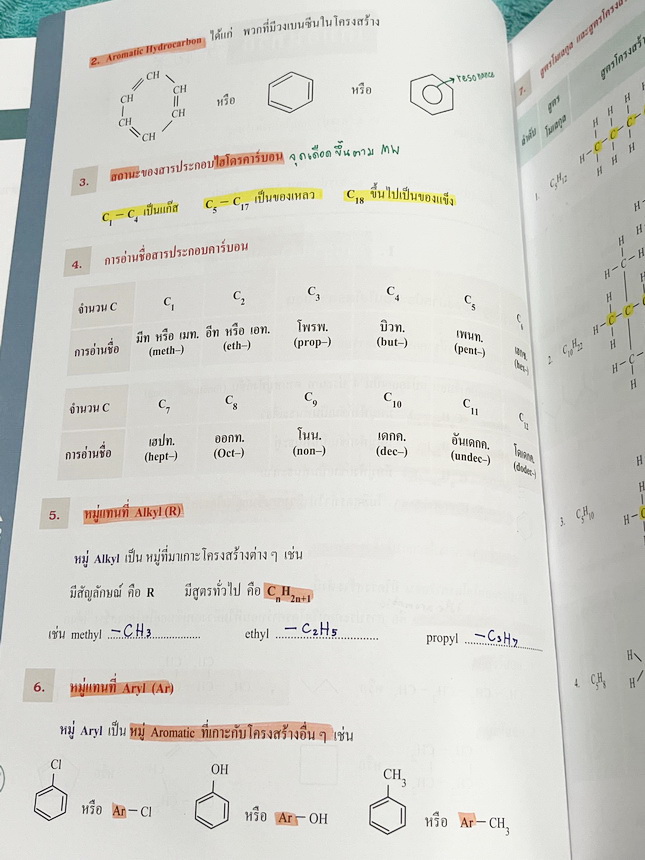 2. Aromatic Hydrocarbon ได้แก่ พวกที่มีวงเบนซีนในโครงสร้าง
CH
CH CH
หรือ หรือ resonance
CH CH
CH
3. สถานะของสารประกอบไฮโดรคาร์บอน จุดเดือดขึ้นตาม MW
C1 – C4 เป็นแก๊ส C5 – C17 เป็นของเหลว C18 ขึ้นไปเป็นของแข็ง
4. การอ่านชื่อสารประกอบคาร์บอน
จำนวน C C1 C2 C3 C4 C5 C6
การอ่านชื่อ มีท หรือ เมท. อีท หรือ เอท. โพรพ. บิวท. เพนท.
(meth–) (eth–) (prop–) (but–) (pent–) (hex–)
จำนวน C C7 C8 C9 C10 C11 C12
การอ่านชื่อ เฮปท. ออกท. โนน. เดกค. อันเดกค. โดเดกค.
(hept–) (Oct–) (non–) (dec–) (undec–) (dodec–)
5. หมู่แทนที่ Alkyl (R)
หมู่ Alkyl เป็น หมู่ที่มาเกาะโครงสร้างต่าง ๆ เช่น
มีสัญลักษณ์ คือ R มีสูตรทั่วไป คือ CnH2n+1
เช่น methyl –CH3 ethyl –C2H5 propyl –C3H7
6. หมู่แทนที่ Aryl (Ar)
หมู่ Aryl เป็น หมู่ Aromatic ที่เกาะกับโครงสร้างอื่น ๆ เช่น
Cl OH CH3
หรือ Ar – Cl หรือ Ar – OH หรือ Ar – CH3
7. สูตรโมเลกุล และสูตรโครงสร้าง
ลำดับ สูตรโมเลกุล สูตรโครงสร้าง
H H H H
1. C5H12 H – C – C – C – C
H H H
H
H – C – H
H
2. C10H22 H – C – C
H – C
H
H
3. C5H10 H – C
4. C5H8 H
H